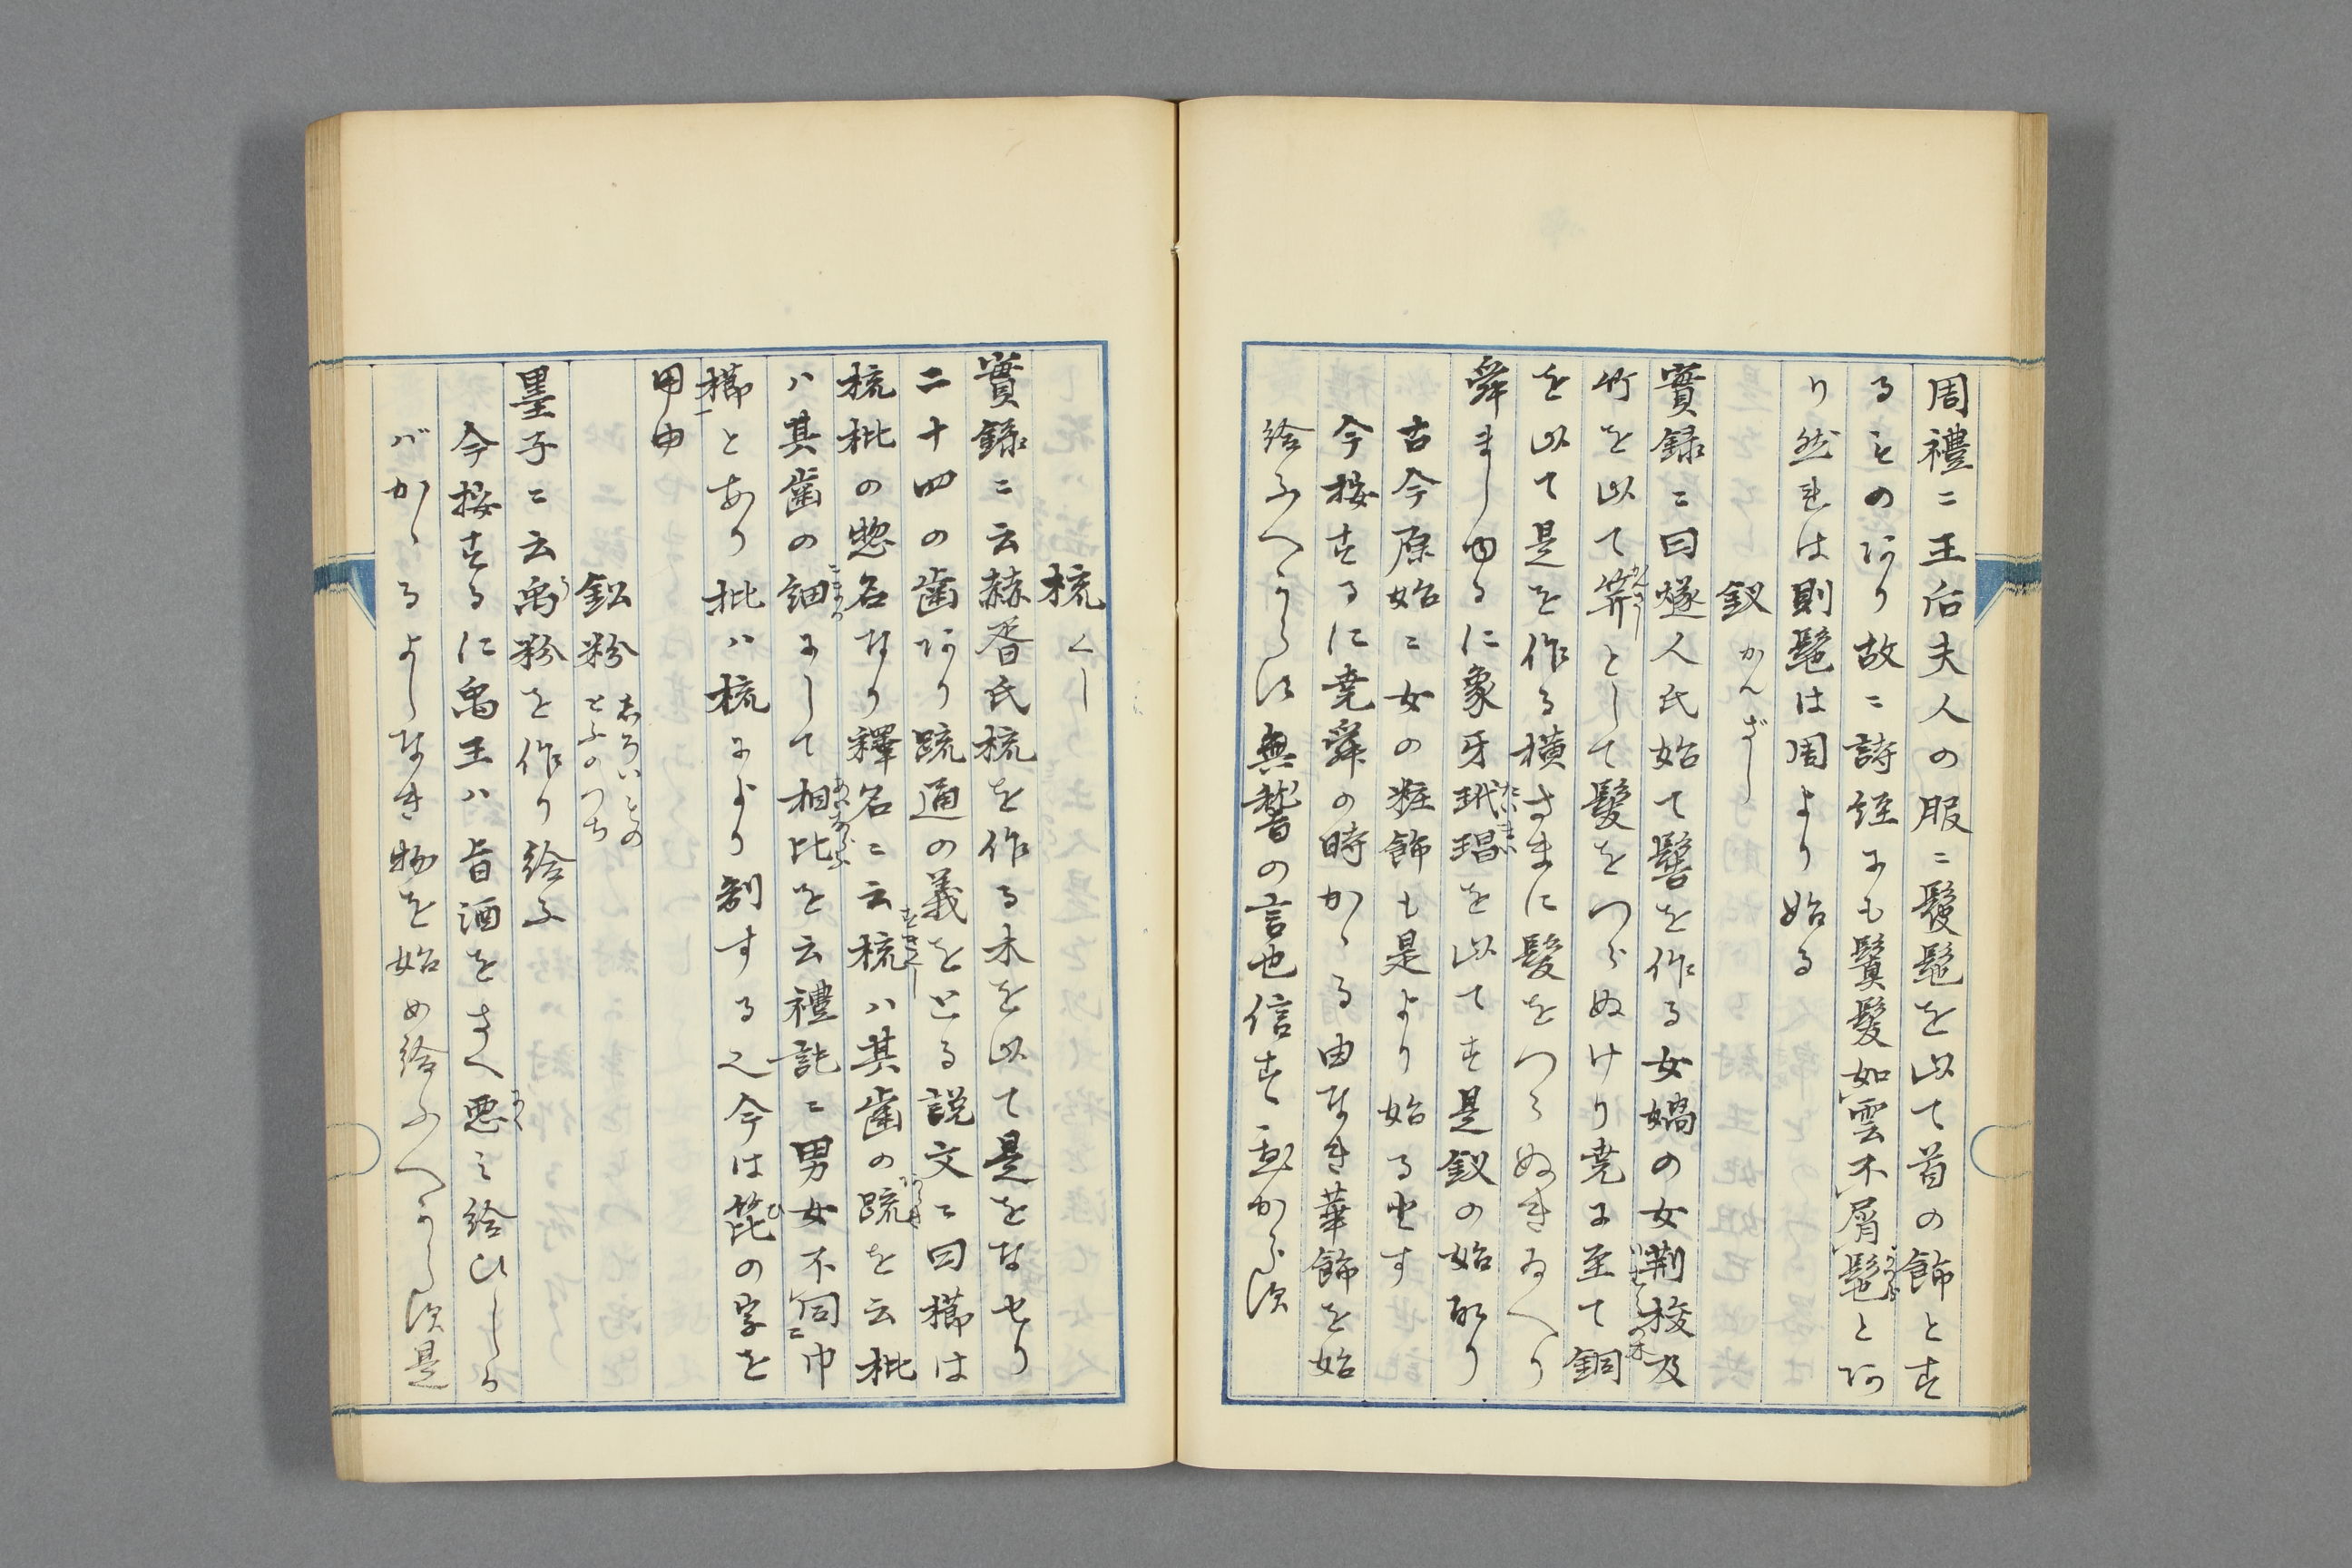 周禮ニ王后夫人の服ニ髲髢を以て首の飾とす
るものあり故ニ詩経にも鬒髪如雲不屑髢とあ
り然れは則髢は周より始る
釵 かんざし
實録ニ曰燧人氏始て髻を作る女媧の女荊梭及
竹を以て笄として髪をつらぬけり堯に至て銅
を以て是を作る横さまに髪をつらぬきゐへり
舜ましゆるに象牙玳瑁を以てす是釵の始取り
古今原始ニ女の粧飾も是より始る也す
今按するに堯舜の時かゝる由なき華飾を始
給ふへからす無稽の言也信す へからす
梳 くし
實録ニ云赫胥氏梳を作る木を以て是をなせり
二十四の歯あり疏通の義をとる説文ニ曰櫛は
梳枇の惣名なり釋名ニ云梳ハ其歯の疏を云枇
ハ其歯の細にして相比を云禮記ニ男女不同巾
櫛とあり枇ハ梳により制する之今は篦の字を
用申
鈆粉 おろいとの とふのつち
墨子ニ云禹粉を作り給ふ
今按するに禹王ハ旨酒をさへ悪ミ給ひしら
バかゝるよしなき物を始め給ふへからす是